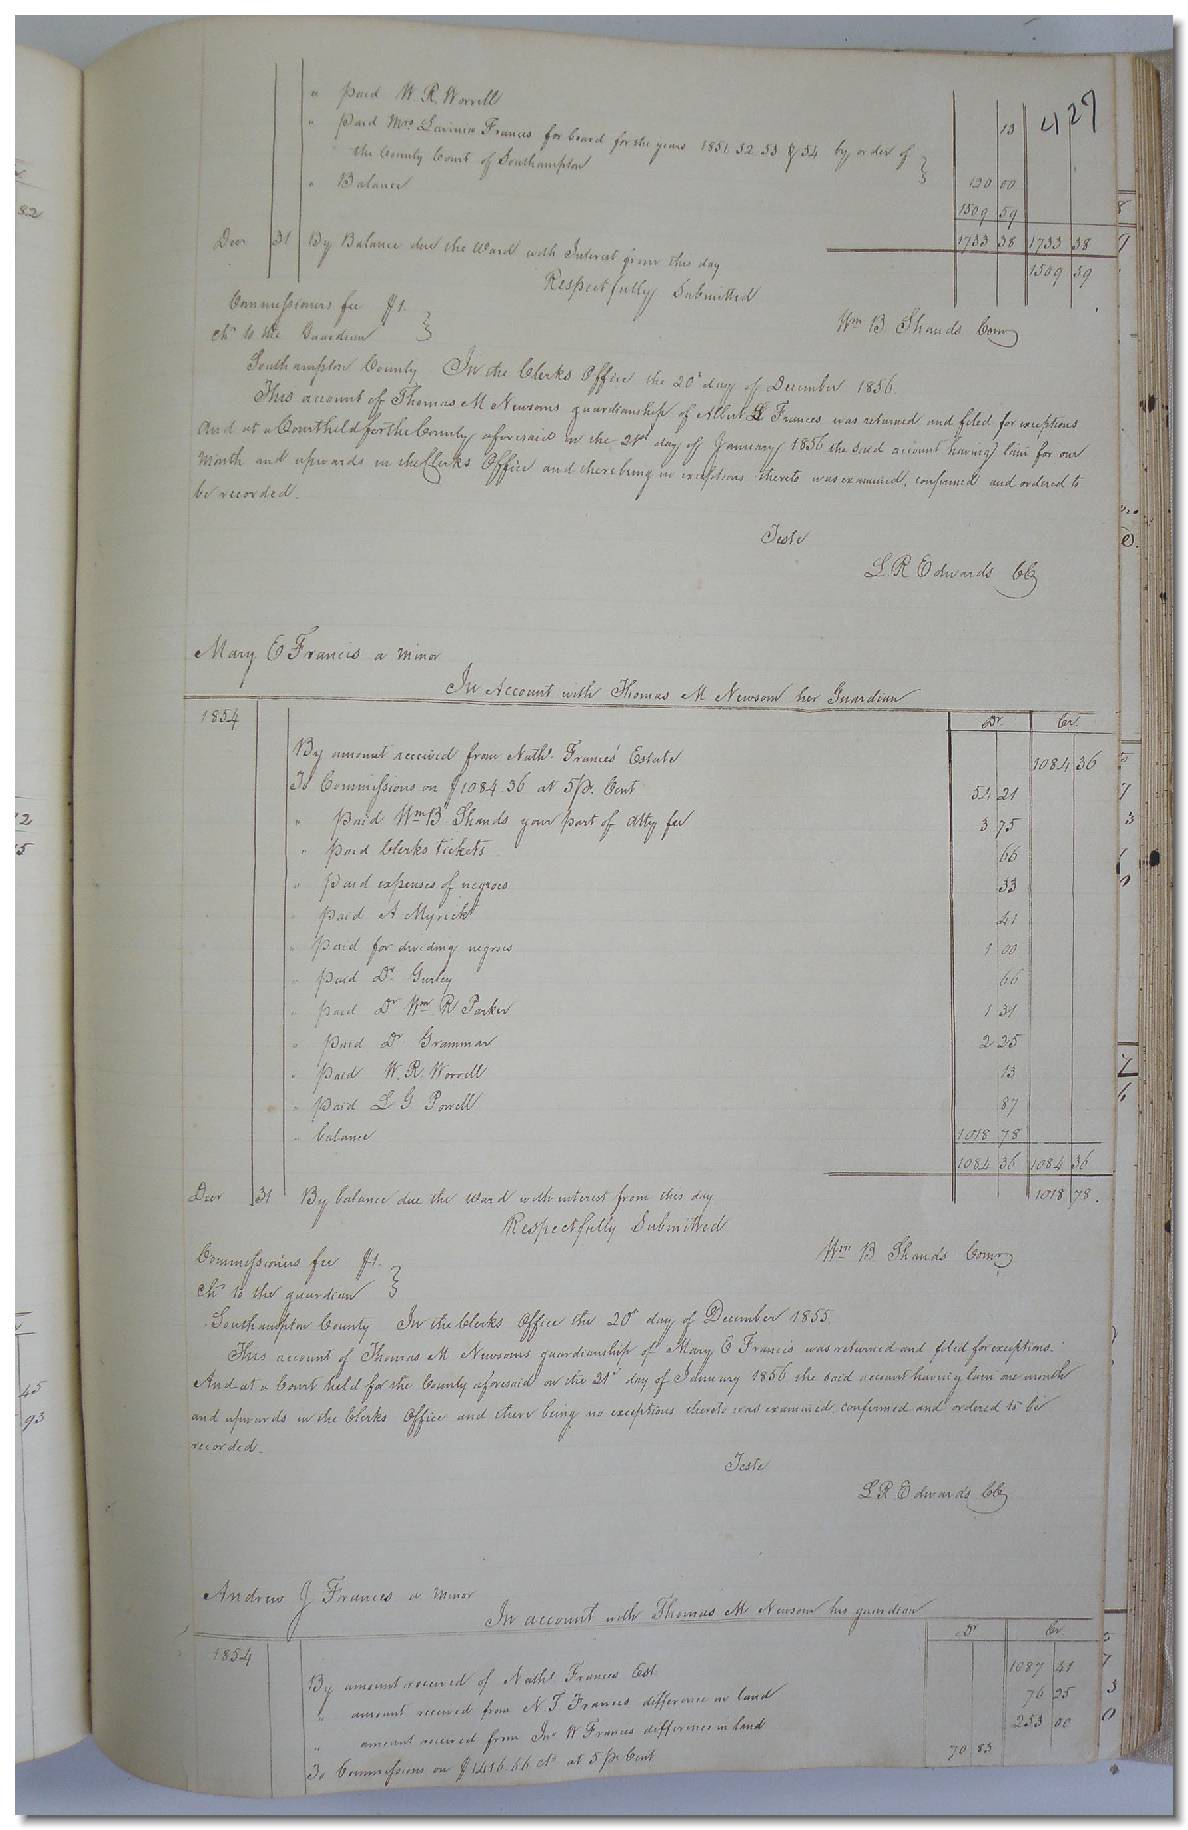 427
" paid W. R. Worrell 13
" paid Mrs. Lavinia Francis for board for the years 1851, 52, 53 & 54 by order of
the County Court of Southampton } 120 00
" Balance 1509 59
1733 38 1733 38
Decr 31 By Balance due the Ward with Interest from this day 1509 59
Respectfully Submitted
Commissioners fee $1.
chd to the Guardian }
Wm B Shands Comr
Southampton County In the Clerks Office the 20th day of December 1856.
This account of Thomas M Newsoms guardianship of Albert L Frances was returned and filed for exceptions
And at a Court held for the County aforesaid on the 21st day of January 1856 the said account having lain for one
Month and upwards in the Clerks Office and there being no exceptions thereto was examined, confirmed and ordered to
be recorded.
Teste
L. R Edwards Clk
Mary E Francis a minor
In Account with Thomas M Newsom her Guardian
1854 Dr Cr.
By amount received from Nathl. Frances' Estate 1084 36
To Commissions on $1084.36 at 5 p. Cent 54 21
" paid Wm B Shands your part of atty fee 3 75
" paid Clerks tickets 66
" paid expenses of negroes 33
" paid A Myrick 41
" paid for dividing negroes 1 00
" paid Dr. Gurley 66
" paid Dr Wm R Parker 1 31
" paid Dr Grammar 2 25
" paid W. R. Worrell 13
" paid L G Powell 87
" balance 1018 78
1084 36 1084 36
Decr 31 By balance due the Ward with interest from this day 1018 78.
Respectfully Submitted
Wm B Shands Comr
Commissioners fee $1.
chd to the guardian }
Southampton County In the Clerks Office the 20th day of December 1855.
This account of Thomas M Newsoms guardianship of Mary E Francis was returned and filed for exceptions.
And at a Court held for the County aforesaid on the 21st day of January 1856 the said account having lain one month
and upwards in the Clerks Office and there being no exceptions thereto was examined, confirmed and ordered to be
recorded.
Teste
L R Edwards Clk
Andrew J Frances a minor
In account with Thomas M Newsom his guardian
1854 Dr Cr
By amount received of Nathl Frances Est. 1087 41
" amount received from N T Francis difference in land 76 25
" amount received from Jno W Francis difference in land 253 00
To Commissions on $1416.66 cts at 5 p. Cent 70 83